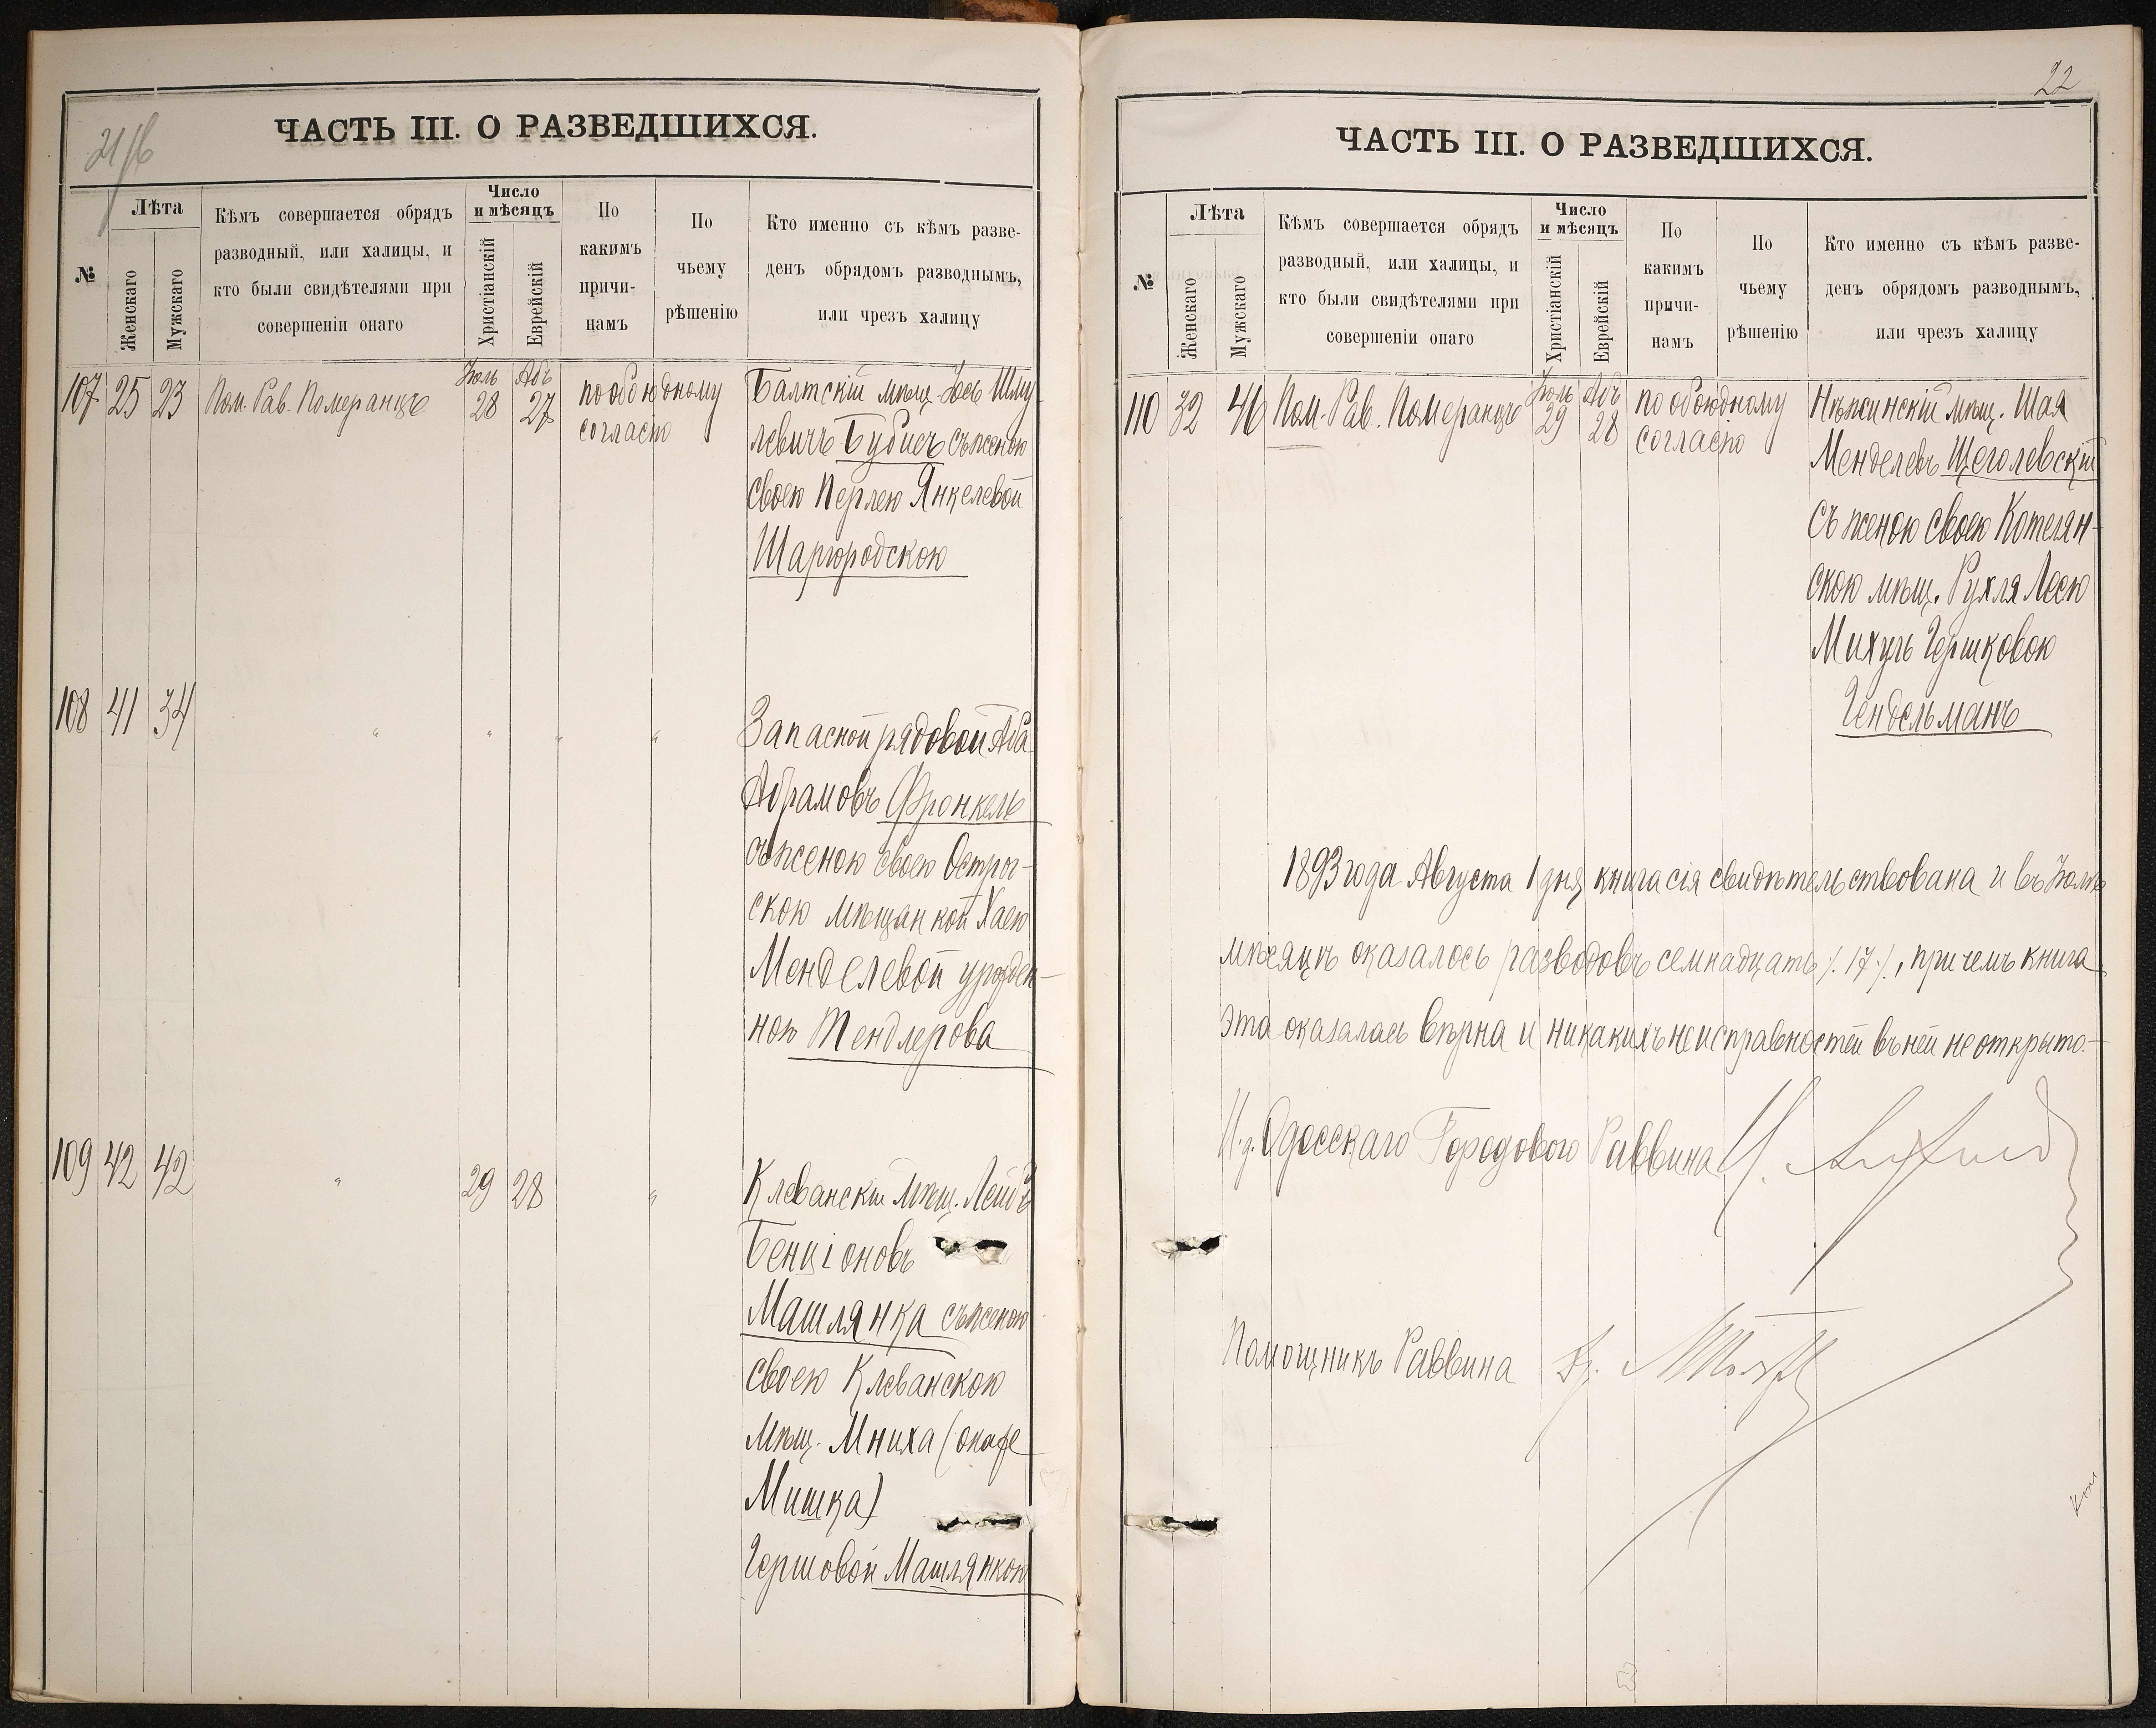 ЧАСТЬ III. О РАЗВЕДШИХСЯ.
№
Лѣта
Женскаго
Мужскаго
Кѣмъ совершается обрядъ
разводный, или халицы, и
кто были свидѣтелями при
совершеніи онаго
Число
и мѣсяцъ
Христіанскій
Еврейскій
По
какимъ
причи-
намъ
По
чьему
рѣшенію
Кто именно съ кѣмъ разве-
денъ обрядомъ разводнымъ,
или чрезъ халицу
107 25 23 Пом. Рав. Померанцъ
Іюль 28
Абъ 27
по обоюдному
согласію
Балтскій мѣщ. Іось Шму-
левичъ Бубисъ съ женою
своею Перлею Янкелевой
Шаргородскою
108 41 34 " " " "
Запасной рядовой Аба
Абрамовъ Фронкель
съ женою своею Остро-
скою мѣщанкой Хаею
Менделевой урожден-
ною Тендлерова
109 42 42 " 29 28 "
Клеванскій мѣщ. Лейбъ
Бенціоновъ
Машлянка съ женою
своею Клеванскою
мѣщ. Мниха (она же
Мишка)
Гершовой Машлянкою
22
ЧАСТЬ III. О РАЗВЕДШИХСЯ.
№
Лѣта
Женскаго
Мужскаго
Кѣмъ совершается обрядъ
разводный, или халицы, и
кто были свидѣтелями при
совершеніи онаго
Число
и мѣсяцъ
Христіанскій
Еврейскій
По
какимъ
причи-
намъ
По
чьему
рѣшенію
Кто именно съ кѣмъ разве-
денъ обрядомъ разводнымъ,
или чрезъ халицу
110 32 46 Пом. Рав. Померанцъ
Іюль 29
Абъ 28
по обоюдному
согласію
Нѣжинскій мѣщ. Шая
Менделевъ Щеголевскій
съ женою своею Котелян-
скою мѣщ. Рухля Леею
Михуль Гершковою
Гендельманъ
1893 года Августа 1 дня книга сія свидѣтельствована и въ Іюлѣ
мѣсяцѣ оказалось разводовъ семнадцать /. 17 ./, причемъ книга
эта оказалась вѣрна и никакихъ неисправностей въ ней не открыто.
И. д. Одесскаго Городового Раввина
Помощникъ Раввина